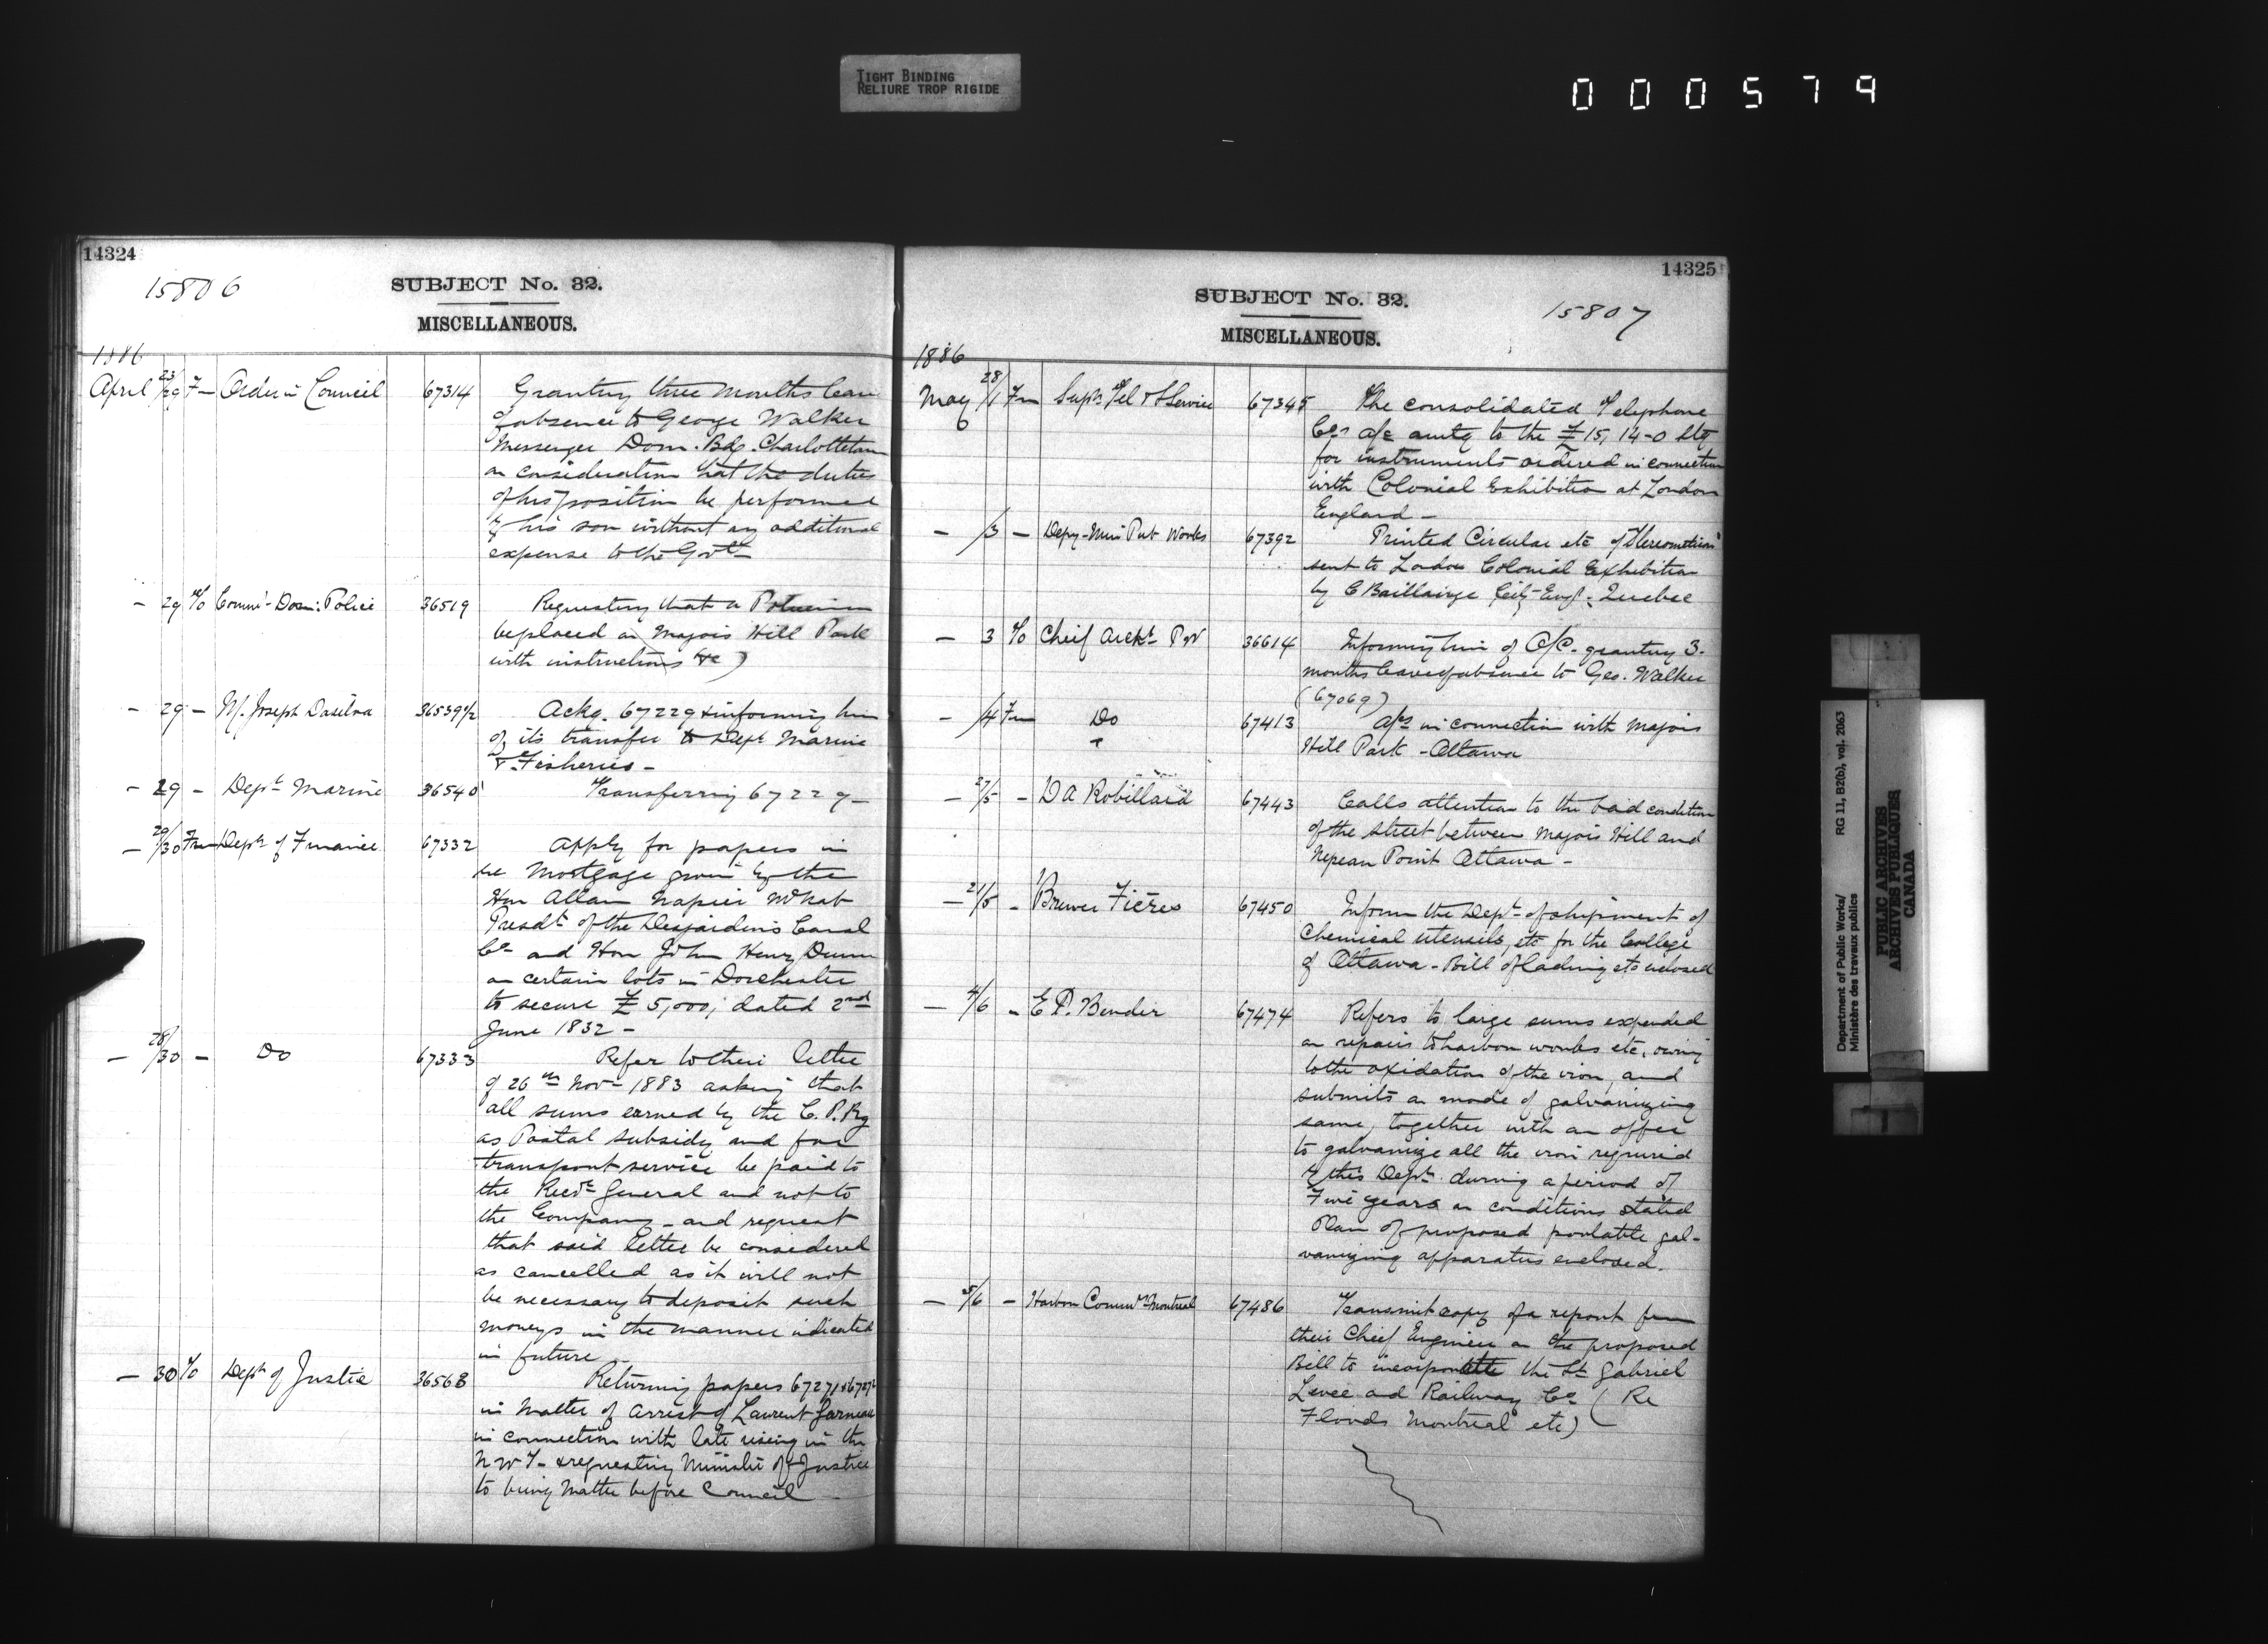 TIGHT BINDING
RELIURE TROP RIGIDE
000579
14324
15806
SUBJECT No. 32.
MISCELLANEOUS.
1886
April 23/29 Fm Order in Council 67314 Granting three months leave
of absence to George Walker
Messenger Dom. Bdg. Charlottetown
on consideration that the duties
of his position be performed
by his son without any additional
expense to the Govt
- 29 To Commr Dom: Police 36519 Requesting that a Policeman
be placed on Majors Hill Park
with instructions &c)
- 29 - M. Joseph Dasilva 36539 1/2 Ackg. 67229 & informing him
of its transfer to Dept Marine
& Fisheries -
- 29 - Dept Marine 36540 Transferring 67229 -
- 29/30 Fm Dept of Finance 67332 Apply for papers in
re Mortgage given by the
Hon Allan Napier McNab
Presdt of the Desjardins Canal
Co and Hon John Henry Dunn
on certain lots in Dorchester
to secure £5,000; dated 2nd
June 1832 -
- 28/30 - Do 67333 Refer to their letter
of 26th Nov 1883 asking that
all sums earned by the C.P.Ry
as Postal subsidy and for
transport service be paid to
the Recr General and not to
the Company - and request
that said letter be considered
as cancelled as it will not
be necessary to deposit such
moneys in the manner indicated
in future -
- 30 To Dept of Justice 36568 Returning papers 67271 & 67272
in Matter of arrest of Laurent Garneau
in connection with late rising in the
N W T - & requesting Minister of Justice
to bring matter before Council -
14325
SUBJECT No. 32.
15807
MISCELLANEOUS.
1886
May 28/1 Fm Supt Tel & S Service 67345 The consolidated Telephone
Cos a/c amtg to the £15, 14-0 Stg
for instruments ordered in connection
with Colonial Exhibition at London
England -
- /3 - Depy-Min Pub Works 67392 Printed Circular etc of "Stereometricon"
sent to London Colonial Exhibition
by C Baillairge City Engr. Quebec
- 3 To Cheif Archt P W 36614 Informing him of O/C. granting 3.
months leave of absence to Geo. Walker
(67069)
- /4 Fm Do 67413 a/cs in connection with Majors
Hill Park - Ottawa
- 27/5 - D A Robillard 67443 Calls attention to the bad condition
of the street between Majors Hill and
Nepean Point Ottawa -
- 21/5 - Brewer Fréres 67450 Inform the Dept of shipment of
chemical utensils, etc for the College
of Ottawa - Bill of lading etc enclosed
- 4/6 - E P. Bender 67474 Refers to large sums expended
on repairs to harbor works etc, owing
to the oxidation of the iron, and
submits a mode of galvanizing
same, together with an offer
to galvanize all the iron required
by this Dept. during a period of
Five years on conditions stated
Plan of proposed portable gal-
vanizing apparatus enclosed.
- 5/6 - Harbor Commrs Montreal 67486 Transmit copy of a report from
their Chief Engineer on the proposed
Bill to incorporate the St Gabriel
Levee and Railway Co (Re
Floods Montreal etc)
Department of Public Works/ RG 11, B2(b), vol. 2063
Ministère des travaux publics
PUBLIC ARCHIVES
ARCHIVES PUBLIQUES
CANADA